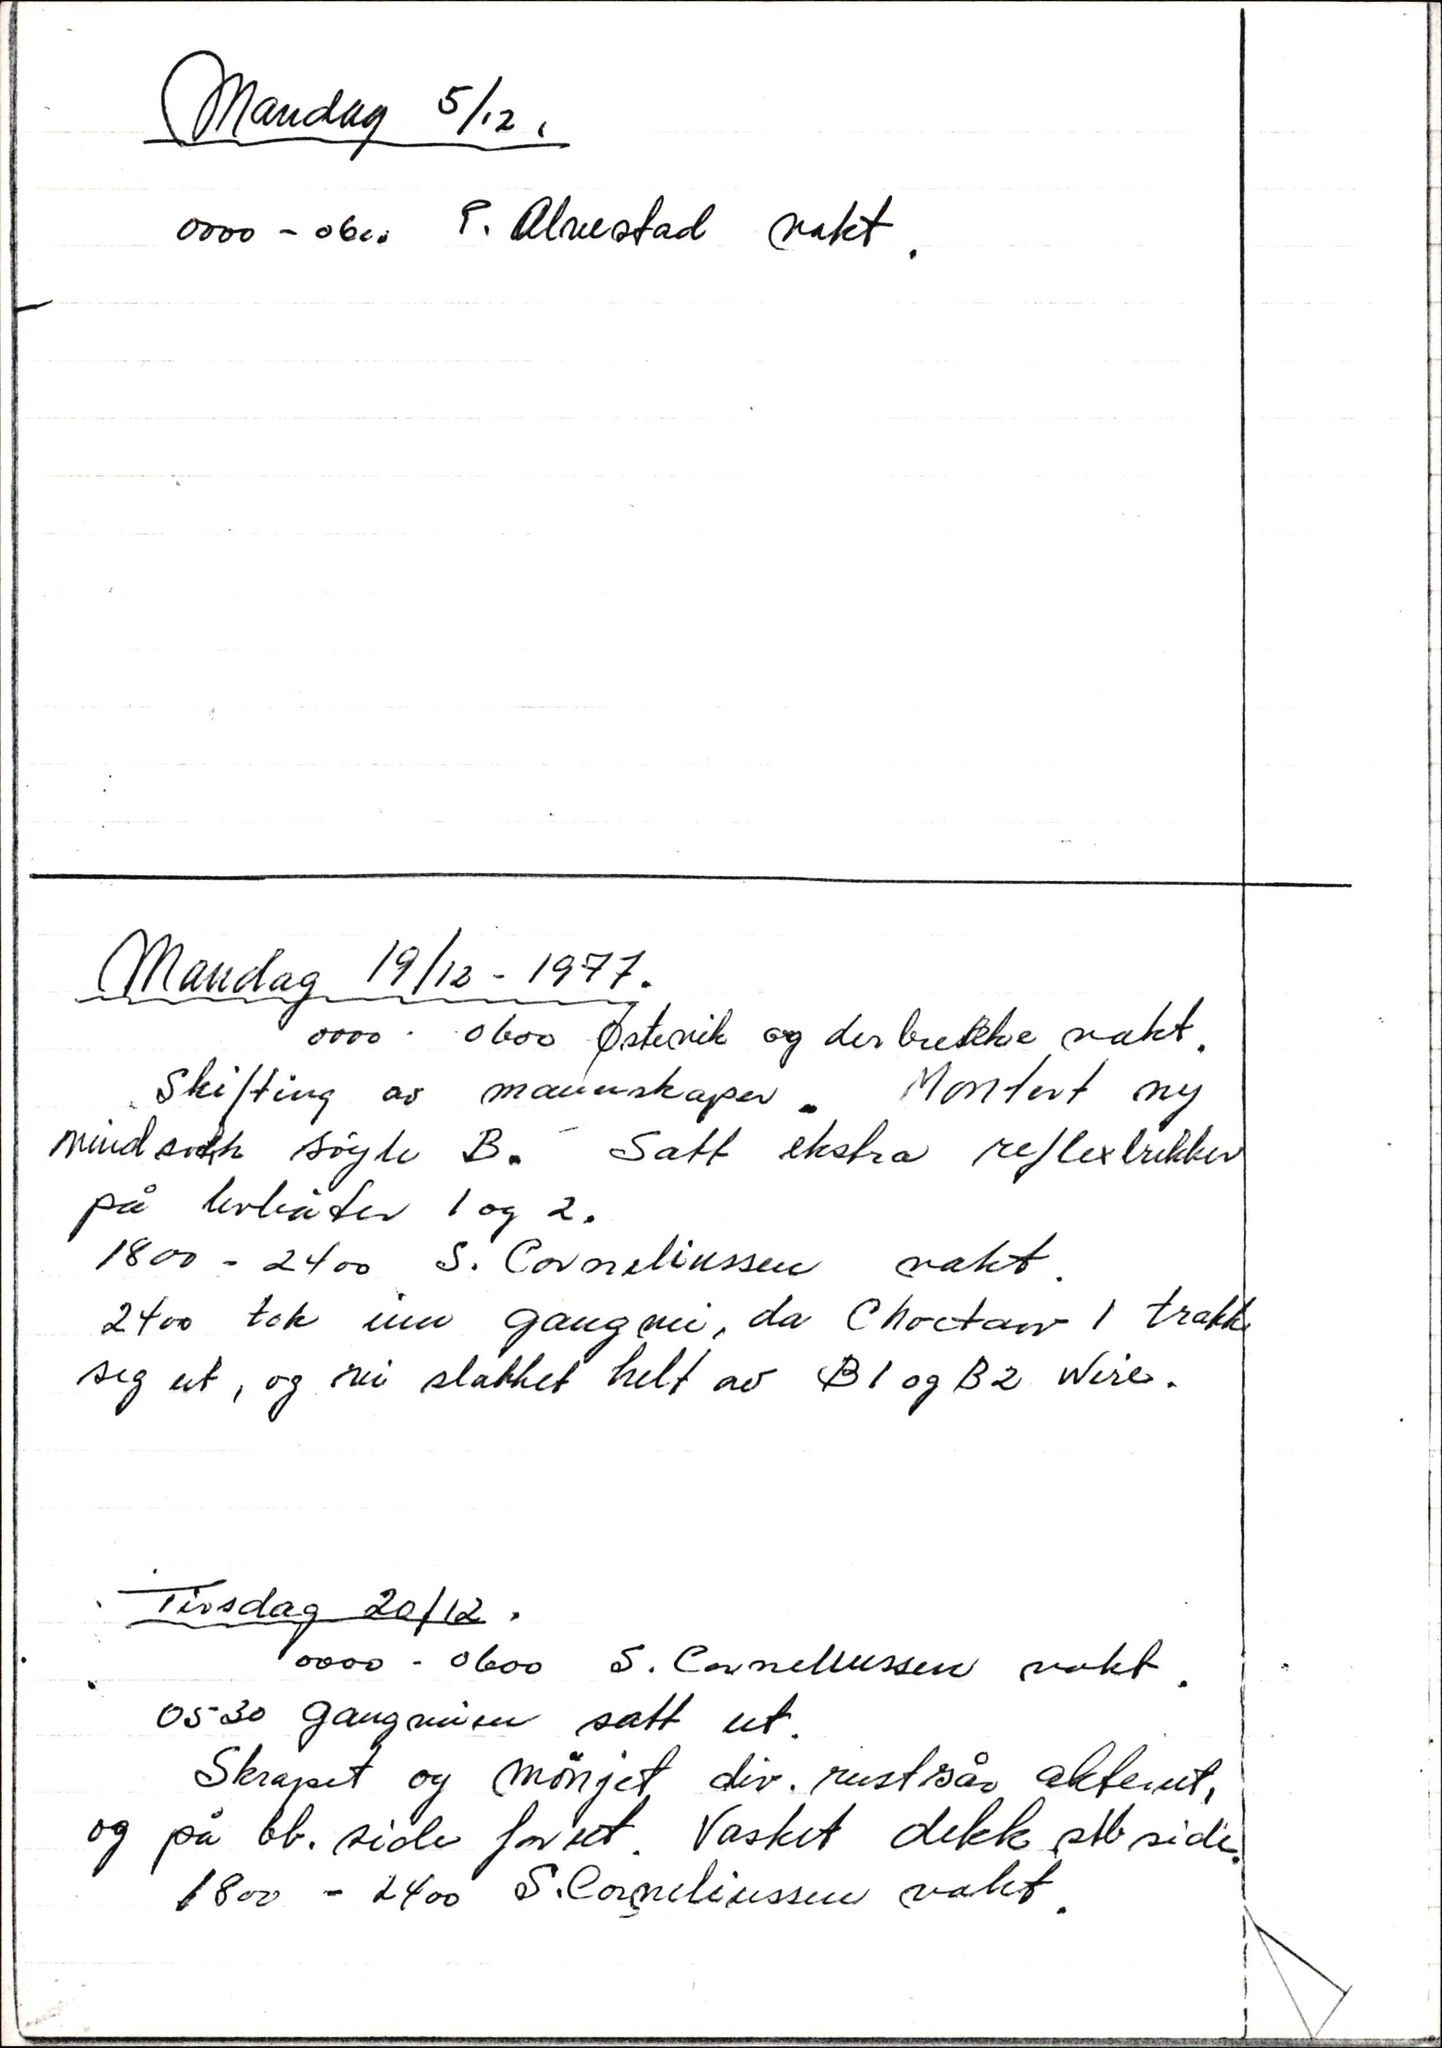 Mandag 5/12.
0000 - 0600 P. Alvestad vakt.
Mandag 19/12 - 1977.
0000 - 0600 Østervik og
vakt.
Skifting av mannskaper. Montert ny
vindsokk søyle B. Satt ekstra reflextrikker
på livbåter 1 og 2.
1800 - 2400 S. Corneliussen vakt.
2400 tok inn gangvei, da Choctaw 1 trakk
seg ut, og vi slakket helt av B1 og B2 wire.
Tirsdag 20/12.
0000 - 0600 S. Corneliussen vakt.
0530 gangveien satt ut.
Skrapet og mønjet div. rustsår akterut,
og på bb. side forut. Vasket dekk stb side.
1800 - 2400 S. Corneliussen vakt.